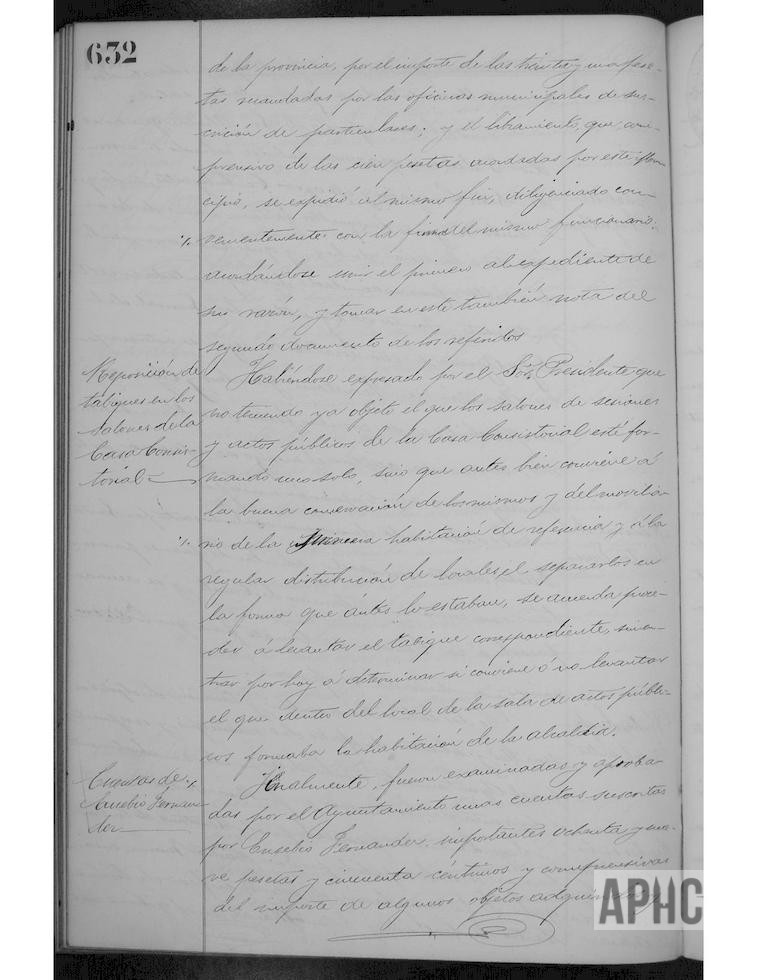 632
de la provincia, por el importe de las treinta y una pese-
tas mandadas por las oficinas municipales de sus-
crición de particulares; y el libramiento, que com-
prensivo de las cien pesetas acordadas por este Muni-
cipio, se expidió al mismo fin, diligenciado con-
venientemente con la firma del mismo funcionario;
acordándose unir el primero al expediente de
su razón, y tomar en este también nota del
segundo documento de los referidos
Reposición de
tabiques en los
salones de la
Casa Consis-
torial
Habiéndose expresado por el Sr. Presidente que
no teniendo ya objeto el que los salones de sesiones
y actos públicos de la Casa Consistorial esté for-
mando uno solo, sino que antes bien conviene á
la buena conservación de los mismos y del movilia-
rio de la primera habitación de referencia y á la
regular distribución de locales, el separarlos en
la forma que antes lo estaban, se acuerda proce-
der á levantar el tabique correspondiente, sin en-
trar por hoy á determinar si conviene ó no levantar
el que dentro del local de la sala de actos públi-
cos formaba la habitación de la alcaldía.
Cuentas de
Eusebio Fernan-
dez
Finalmente, fueron examinadas y aproba-
das por el Ayuntamiento unas cuentas suscritas
por Eusebio Fernandez, importantes ochenta y nue-
ve pesetas y cincuenta céntimos y comprensivas
del importe de algunos objetos adquiridos y
APHC